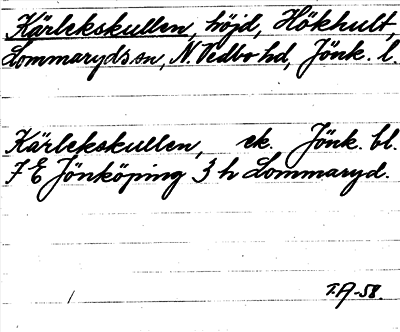 Kärlekskullen, höjd, Hökhult,
Lommaryds sn, N. Vedbo hd, Jönk. l.
Kärlekskullen, ek. Jönk. bl.
7 E Jönköping 3 h Lommaryd.
T.A-58.